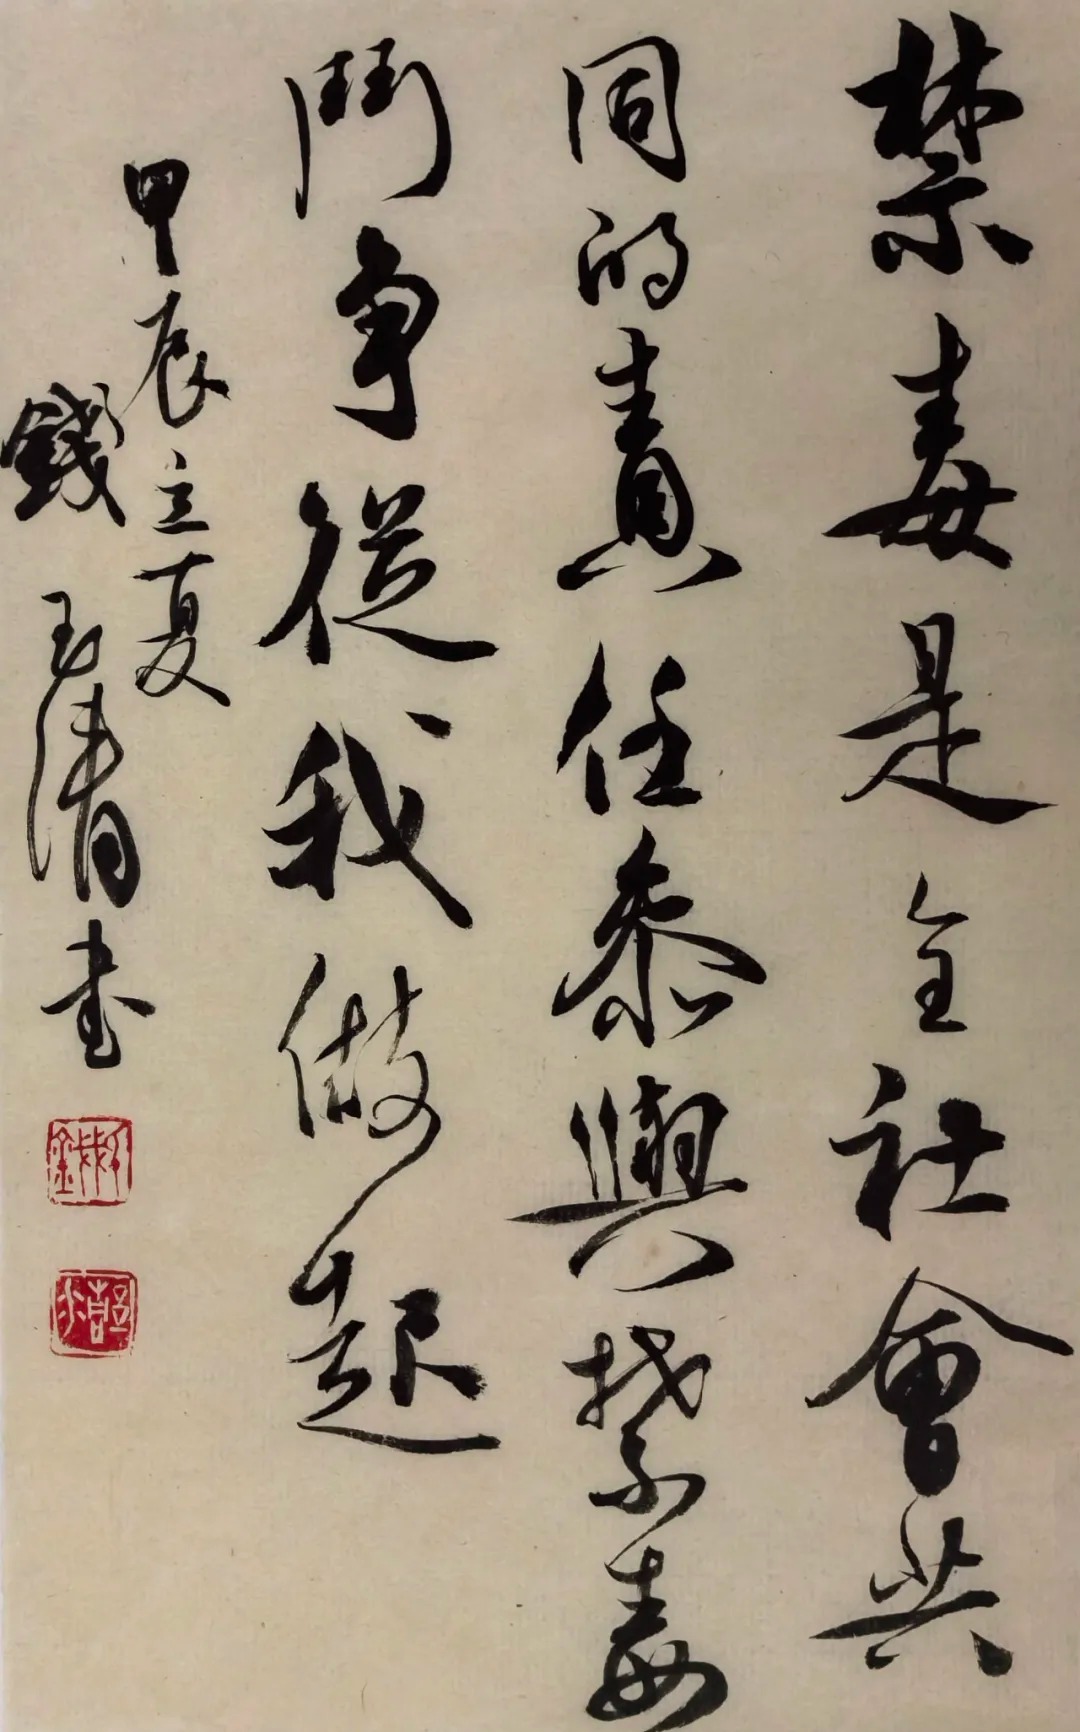 禁毒是全社會共
同的責任參與禁毒
鬥争從我做起
甲辰立夏
錢玉清書